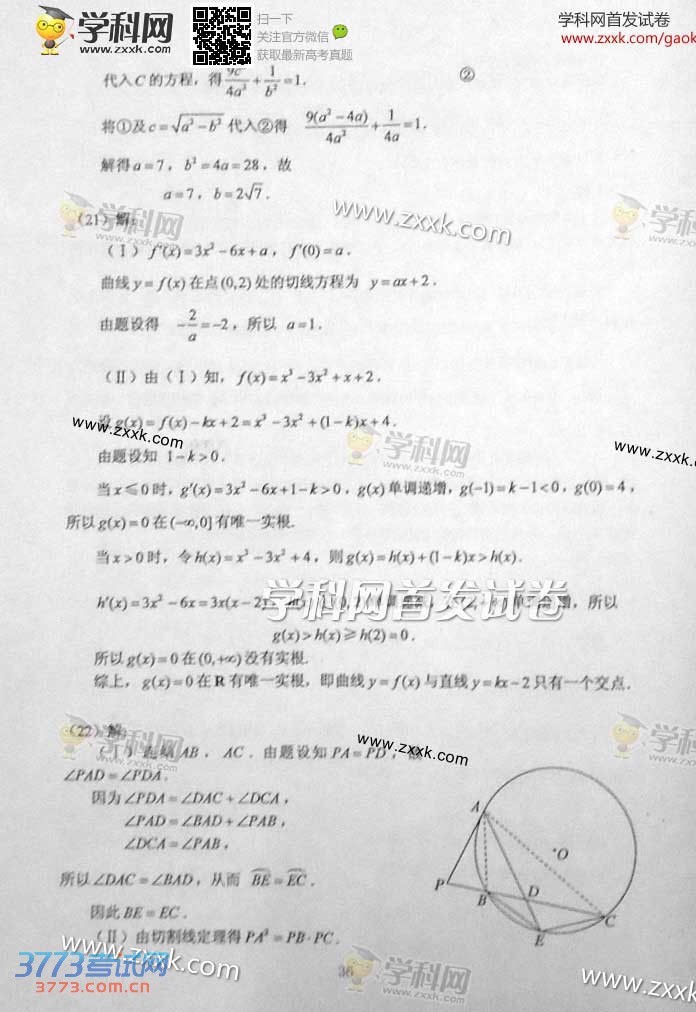 学科网
www.zxxk.com
扫一下
关注官方微信
获取最新高考真题
学科网首发试卷
www.zxxk.com/gaok
代入C的方程，得 9c²/4a² + 1/b² =1. ②
将①及c=√(a²−b²) 代入②得 9(a²−4a)/4a² + 1/4a =1.
解得a=7，b²=4a=28，故
a=7，b=2√7.
www.zxxk.com
(21) 解:
(Ⅰ) f′(x)=3x²−6x+a，f′(0)=a.
曲线y=f(x)在点(0,2)处的切线方程为 y=ax+2.
由题设得 −2/a=−2，所以 a=1.
(Ⅱ) 由(Ⅰ)知，f(x)=x³−3x²+x+2.
设g(x)=f(x)−kx+2=x³−3x²+(1−k)x+4.
www.zxxk.com
学科网
zxxk.com
www.zxxk.com
由题设知 1−k>0.
当x≤0时，g′(x)=3x²−6x+1−k>0，g(x)单调递增，g(−1)=k−1<0，g(0)=4，
所以g(x)=0在(−∞,0]有唯一实根.
当x>0时，令h(x)=x³−3x²+4，则g(x)=h(x)+(1−k)x>h(x).
学科网首发试卷
h′(x)=3x²−6x=3x(x−2)，所以
g(x)>h(x)≥h(2)=0.
所以g(x)=0在(0,+∞)没有实根.
综上，g(x)=0在R有唯一实根，即曲线y=f(x)与直线y=kx−2只有一个交点.
(22) 解:
www.zxxk.com
(Ⅰ) 连结AB，AC. 由题设知PA=PD，故
∠PAD=∠PDA.
因为∠PDA=∠DAC+∠DCA，
∠PAD=∠BAD+∠PAB，
∠DCA=∠PAB，
所以∠DAC=∠BAD，从而 BE=EC.
因此BE=EC.
(Ⅱ) 由切割线定理得PA²=PB·PC.
A
O
P
B
D
C
E
36
www.zxxk.com
学科网
zxxk.com
www.zxxk.com
3773考试网
3773.com.cn